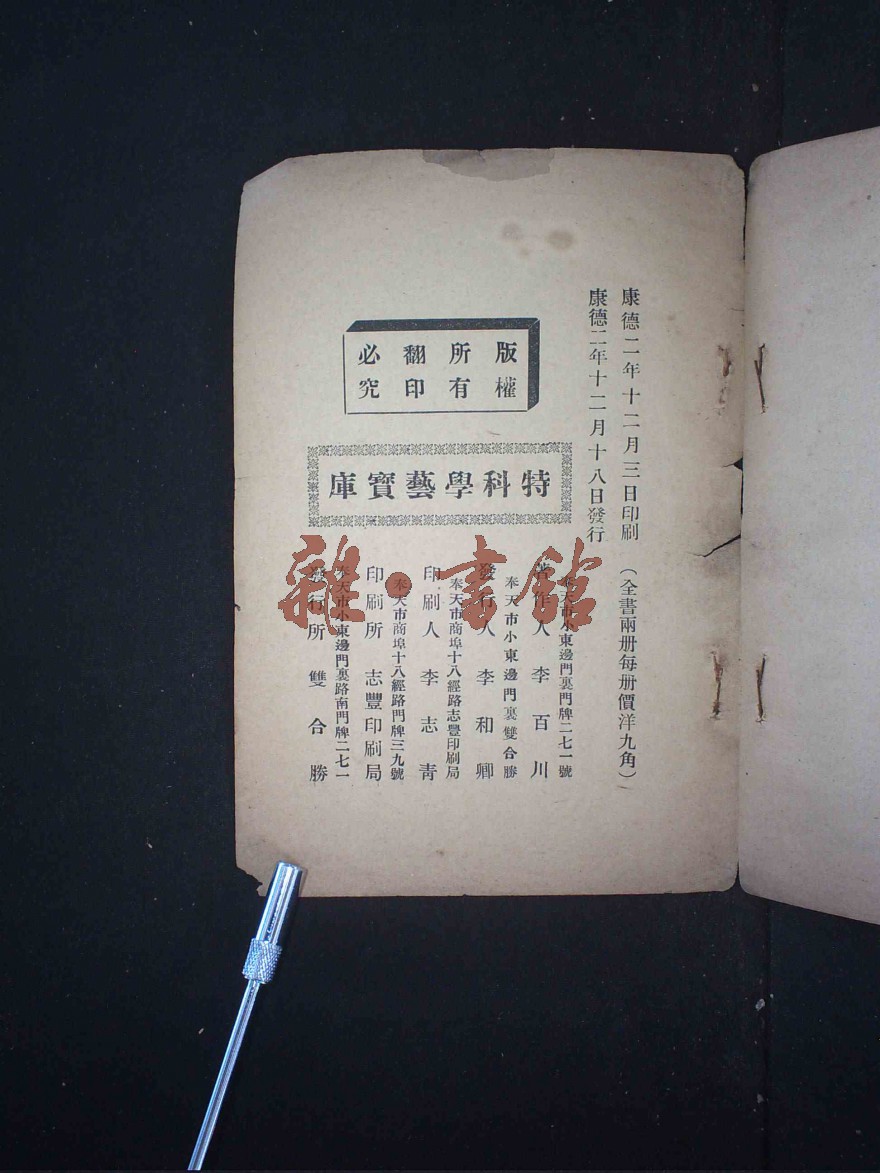 康德二年十二月三日印刷　（全書兩册每册價洋九角）
康德二年十二月十八日發行
版權
所有
翻印
必究
特科學藝寶庫
奉天市小東邊門裏門牌二七一號
著作人　李百川
奉天市小東邊門裏雙合勝
發行人　李和卿
奉天市商埠十八經路志豐印刷局
印刷人　李志靑
奉天市商埠十八經路門牌三九號
印刷所　志豐印刷局
奉天市小東邊門裏路南門牌二七一
發行所　雙合勝
雜·書館